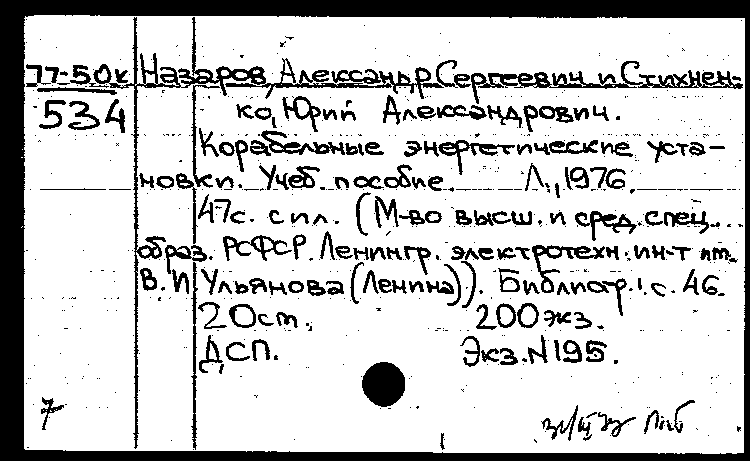 77-50к Назаров, Александр Сергеевич и Стихнен-
534 ко, Юрий Александрович.
Корабельные энергетические уста-
новки. Учеб. пособие. Л., 1976.
47с. с ил. (М-во высш. и сред. спец.
образ. РСФСР. Ленингр. электротехн. ин-т им.
В.И. Ульянова (Ленина)). Библиогр.: с. 46.
20см. 200 экз.
ДСП. Экз. N195.
7